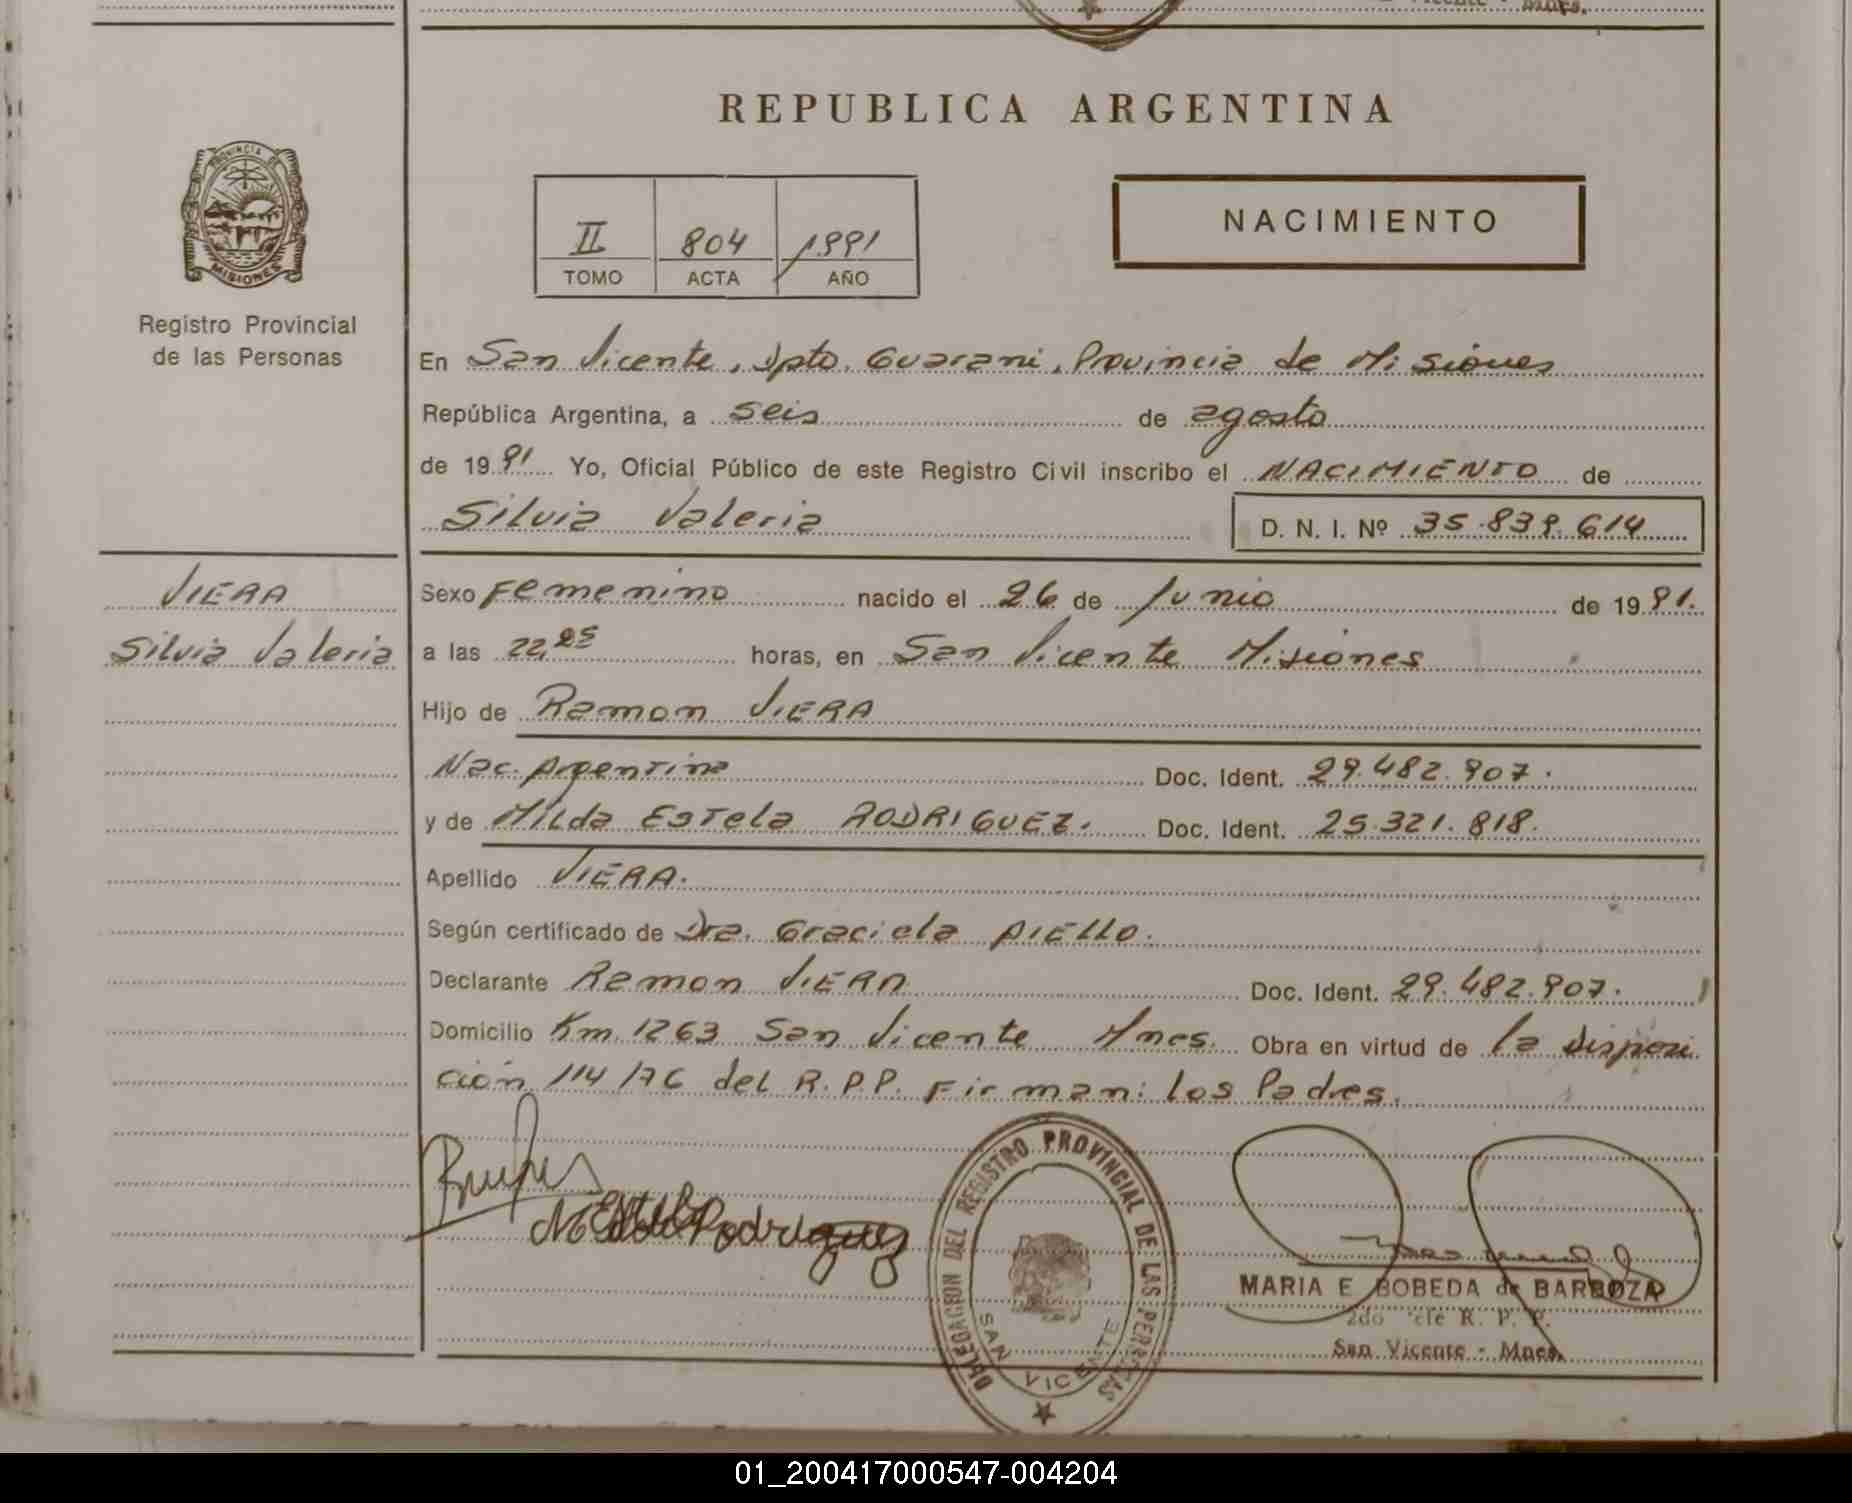 REPUBLICA ARGENTINA
PROVINCIA DE
MISIONES
Registro Provincial
de las Personas
II 804 1991
TOMO ACTA AÑO
NACIMIENTO
En San Vicente, Dpto. Guarani, Provincia de Misiones
República Argentina, a seis de agosto
de 1991 Yo, Oficial Público de este Registro Civil inscribo el NACIMIENTO de
Silvia Valeria D. N. I. Nº 35.839.614
VIERA
Silvia Valeria
Sexo Femenino nacido el 26 de Junio de 1991.
a las 22,25 horas, en San Vicente Misiones
Hijo de Ramon VIERA
Nac. Argentina Doc. Ident. 29.482.907.
y de Milda Estela RODRIGUEZ. Doc. Ident. 25.321.818.
Apellido VIERA.
Según certificado de Dra. Graciela AIELLO.
Declarante Ramon VIERA Doc. Ident. 29.482.907.
Domicilio Km. 1263 San Vicente Mnes. Obra en virtud de la disposi
ción 114/76 del R.P.P. Firman: los Padres.
Rodriguez
DELEGACION DEL REGISTRO PROVINCIAL DE LAS PERSONAS
SAN VICENTE
MARIA E BOBEDA de BARBOZA
2do R. P. P.
San Vicente - Mnes.
01_200417000547-004204